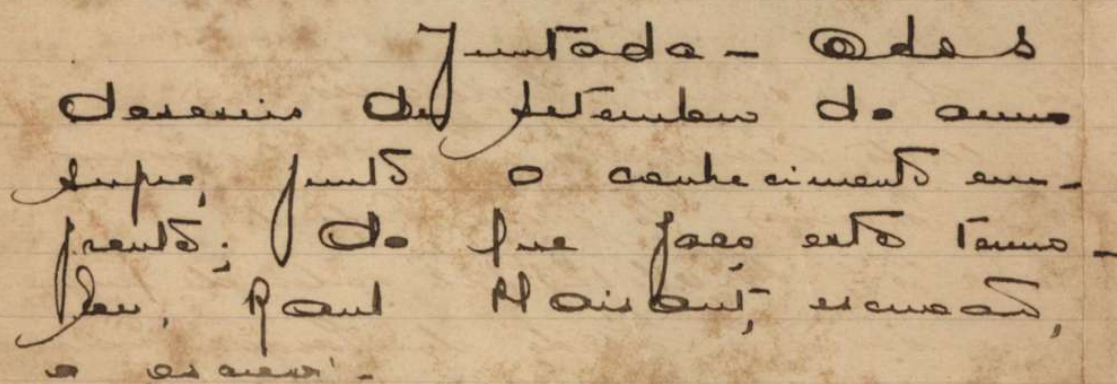 Juntada - Aos
deseseis de setembro do anno
supra, junto o conhecimento em-
frente; do que faço este termo -
Eu, Raul Plaisant, escrivão,
o escrevi -